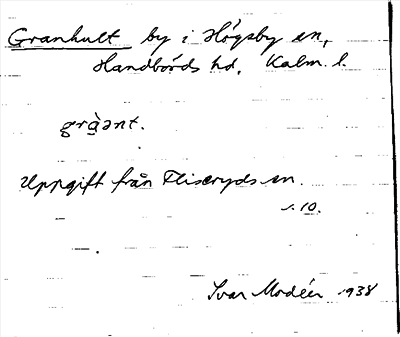 Granhult by i Högsby sn,
Handbörds hd, Kalm. l.
gràənt.
Uppgift från Fliseryds sn.
s. 10.
Ivar Modéer 1938